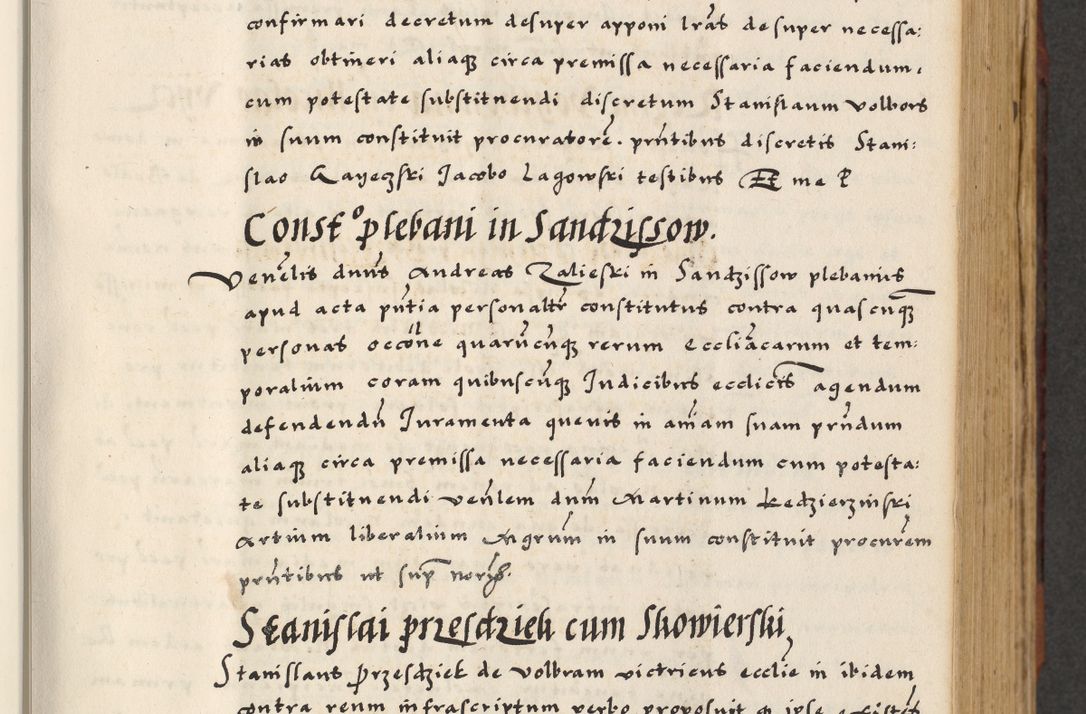 confirmari decretum desuper apponi lras desuper necessa:
rias obtineri aliaq circa premissa necessaria faciendum,
cum potestate substituendi discretum Stanislaum Volbors
in suum constituit procuratore. pntibus discretis Stani:
slao Jacobo Lagowski testibus Et me P
Const° plebani in Sandzissow.
Venelis dnus Andreas Zalieski in Sandzissow plebanus
apud acta pntia personaltr constitutus contra quascunq
personas occone quarucunq rerum eccliacarum et tem:
poralium coram quibuscunq Iudicibus ecclicis agendum
defendendu Iuramenta quevis in aiam suam prndum
aliaq circa premissa necessaria faciendum cum potesta:
te substituendi venlem dnm Martinum Kedzierzinski
Artium liberalium Mgrum in suum constituit procurem
pntibus ut sup noris.
Stanislai przesdzieh cum Skowierski
Stanislaus Przesdziek de Volbram victricus ecclie in ibidem
contra reum infrascriptum verbo proposuit q ipse existens